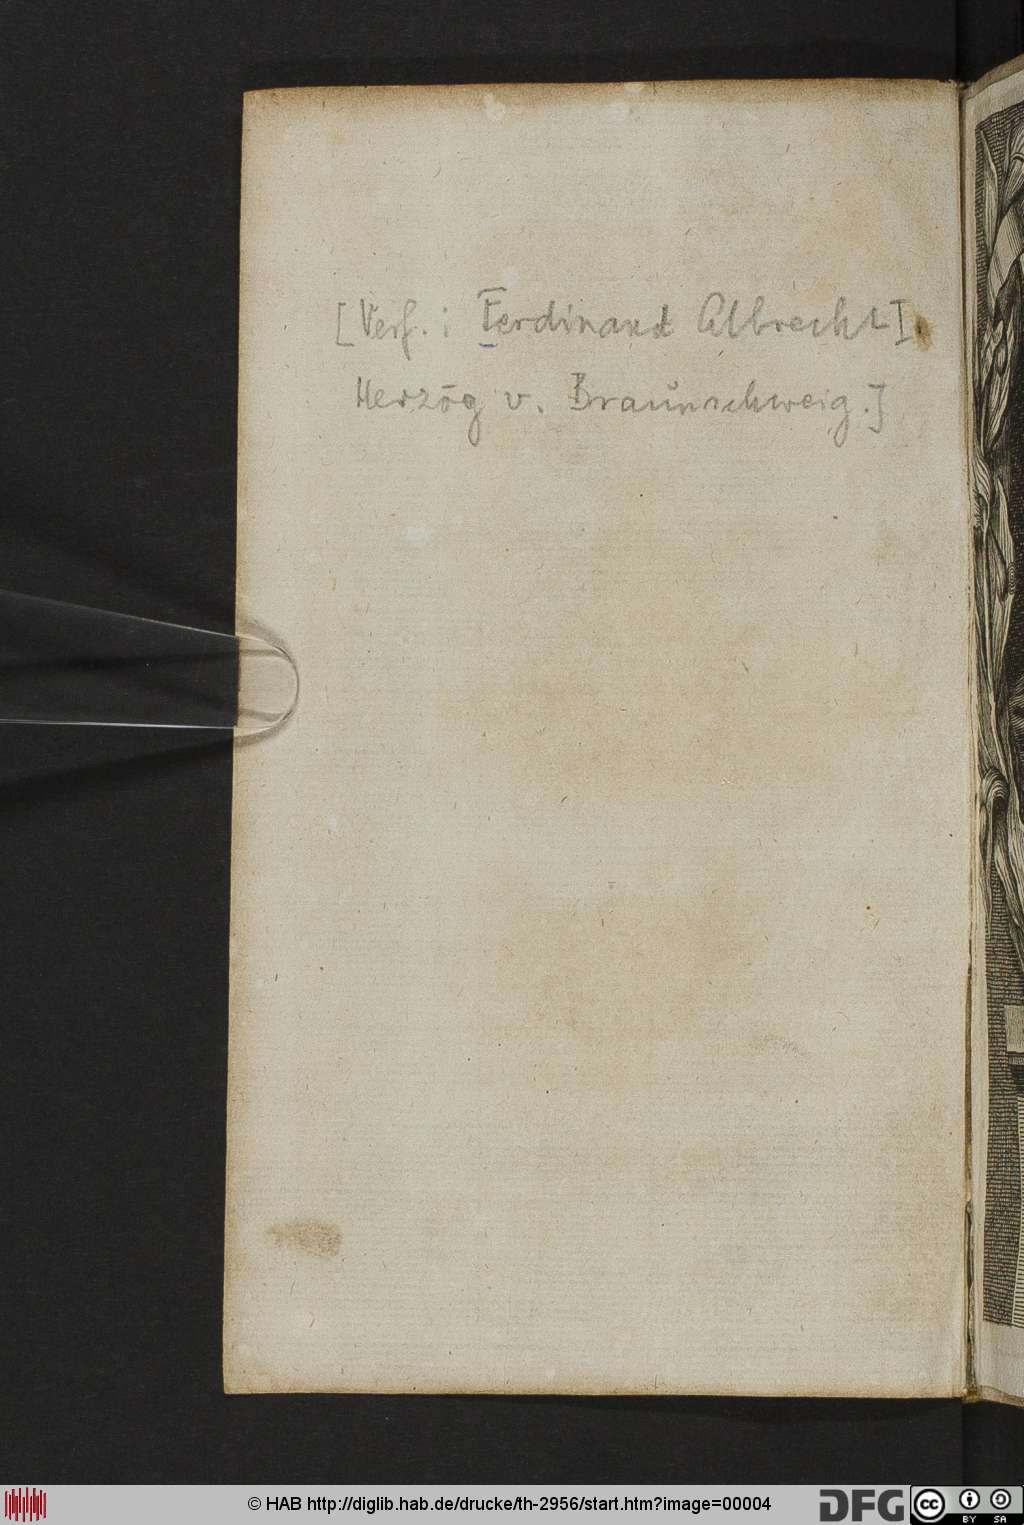 [Verf.: Ferdinand Albrecht I.
Herzog v. Braunschweig.]
© HAB http://diglib.hab.de/drucke/th-2956/start.htm?image=00004
DFG
cc
BY SA